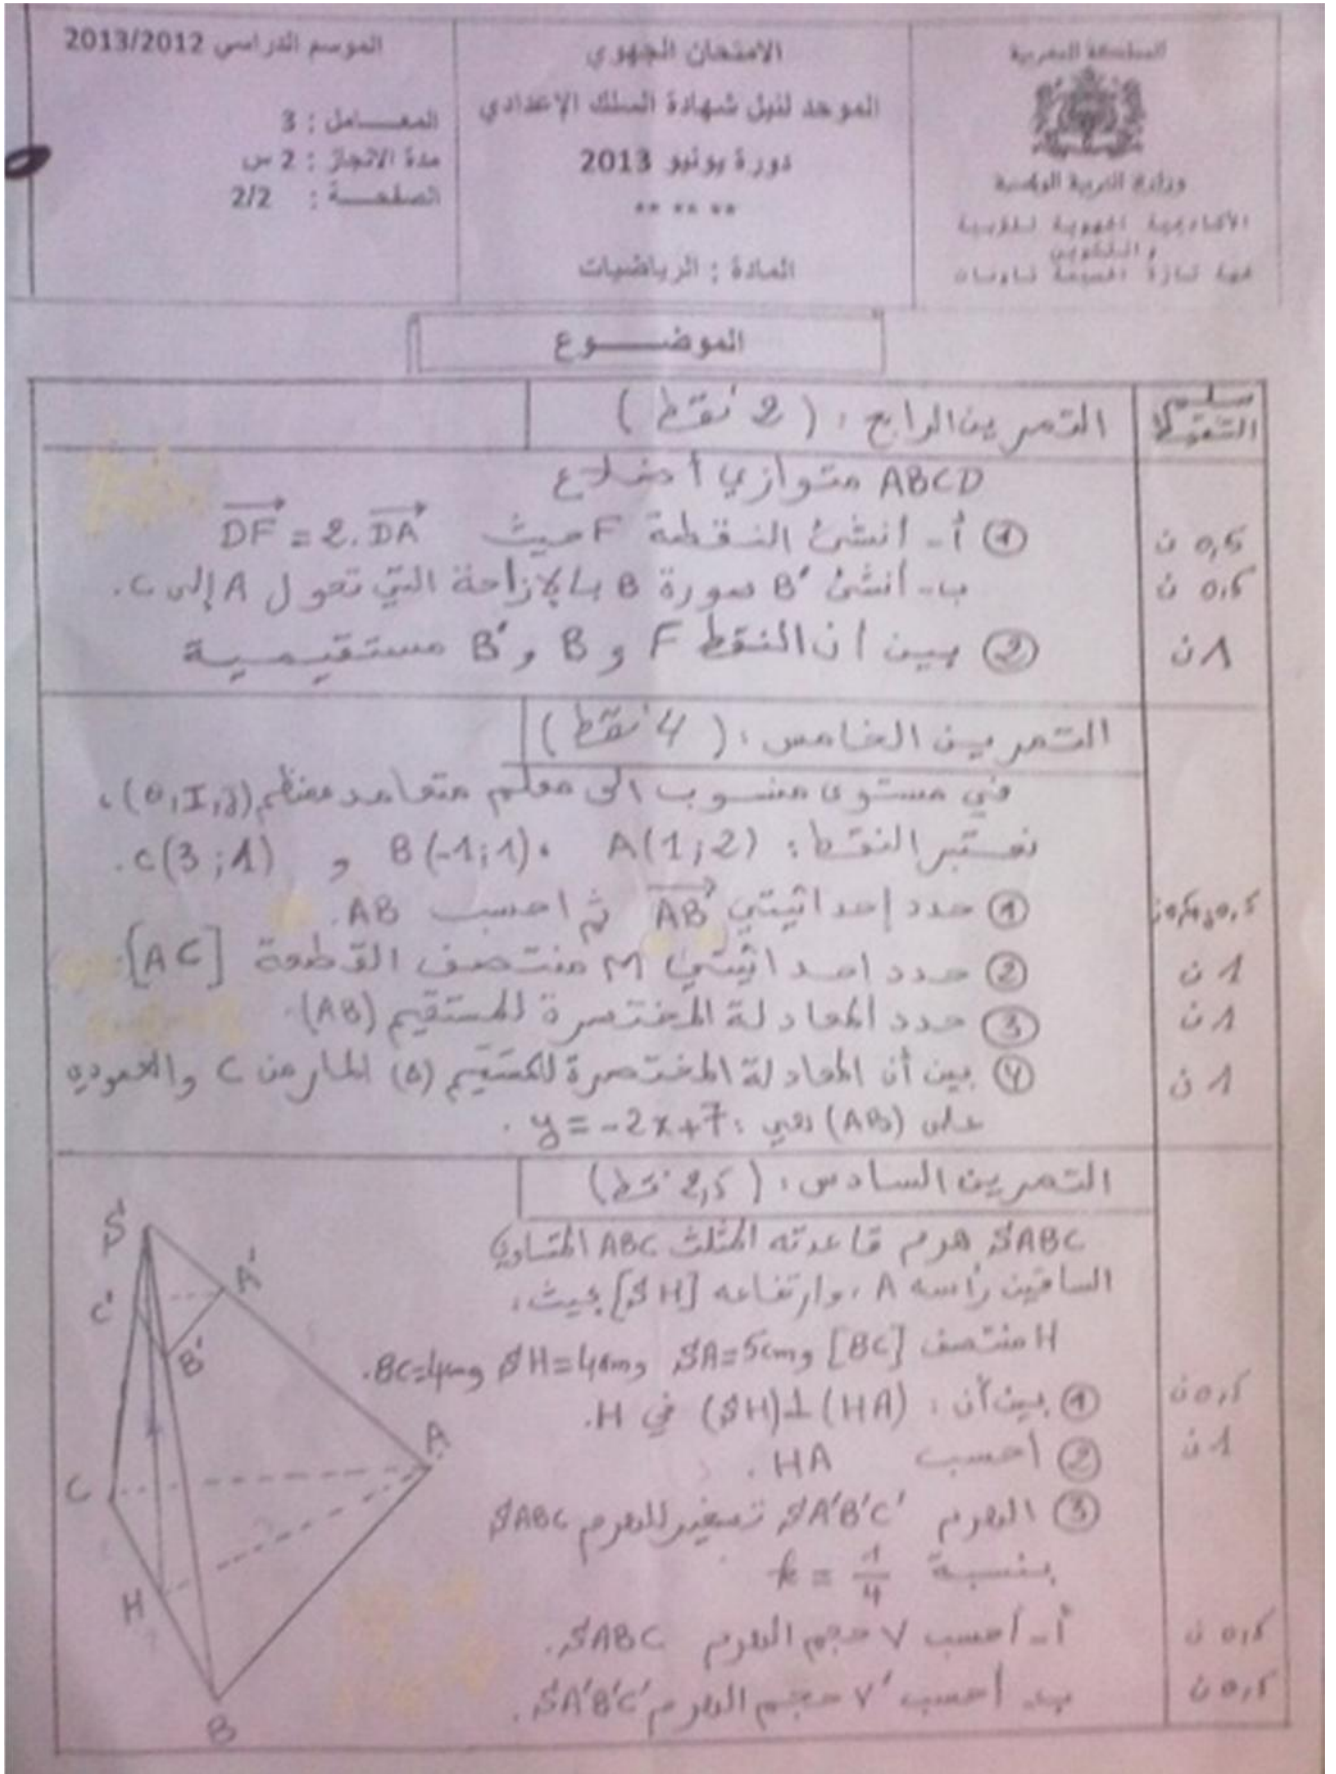 المملكة المغربية
وزارة التربية الوطنية
الأكاديمية الجهوية للتربية
والتكوين
جهة تازة الحسيمة تاونات
الامتحان الجهوي
الموحد لنيل شهادة السلك الإعدادي
دورة يونيو 2013
** ** **
المادة : الرياضيات
الموسم الدراسي 2013/2012
المعـــامل : 3
مدة الانجاز : 2 س
الصفحـــة : 2/2
الموضـــوع
سلم التنقيط
التمرين الرابع : (2 نقط)
ABCD متوازي أضلاع
① أ- أنشئ النقطة F حيث DF = 2.DA
0,5 ن
ب- أنشئ B' صورة B بالإزاحة التي تحول A إلى C.
0,5 ن
② بين أن النقط F و B و B' مستقيمية
1 ن
التمرين الخامس : (4 نقط)
في مستوى منسوب الى معلم متعامد ممنظم (O,I,J)،
نعتبر النقط : A(1;2) ، B(-1;1) و C(3;1).
① حدد إحداثيتي AB ثم احسب AB.
0,5ن+0,5ن
② حدد احداثيتي M منتصف القطعة [AC].
1 ن
③ حدد المعادلة المختصرة للمستقيم (AB).
1 ن
④ بين أن المعادلة المختصرة للمستقيم (Δ) المار من C والعمودي
1 ن
على (AB) هي : y = -2x+7 .
التمرين السادس : (2,5 نقط)
SABC هرم قاعدته المثلث ABC المتساوي
الساقين رأسه A ، وارتفاعه [SH] بحيث :
H منتصف [BC] و SA=5cm و SH=4cm و BC=4cm.
① بين أن : (SH)⊥(HA) في H.
0,5 ن
② أحسب HA .
1 ن
③ الهرم SA'B'C' تصغير للهرم SABC
بنسبة k = 1/4
أ- أحسب V حجم الهرم SABC.
0,5 ن
ب- أحسب V' حجم الهرم SA'B'C'.
0,5 ن
S
A'
C'
B'
A
C
H
B